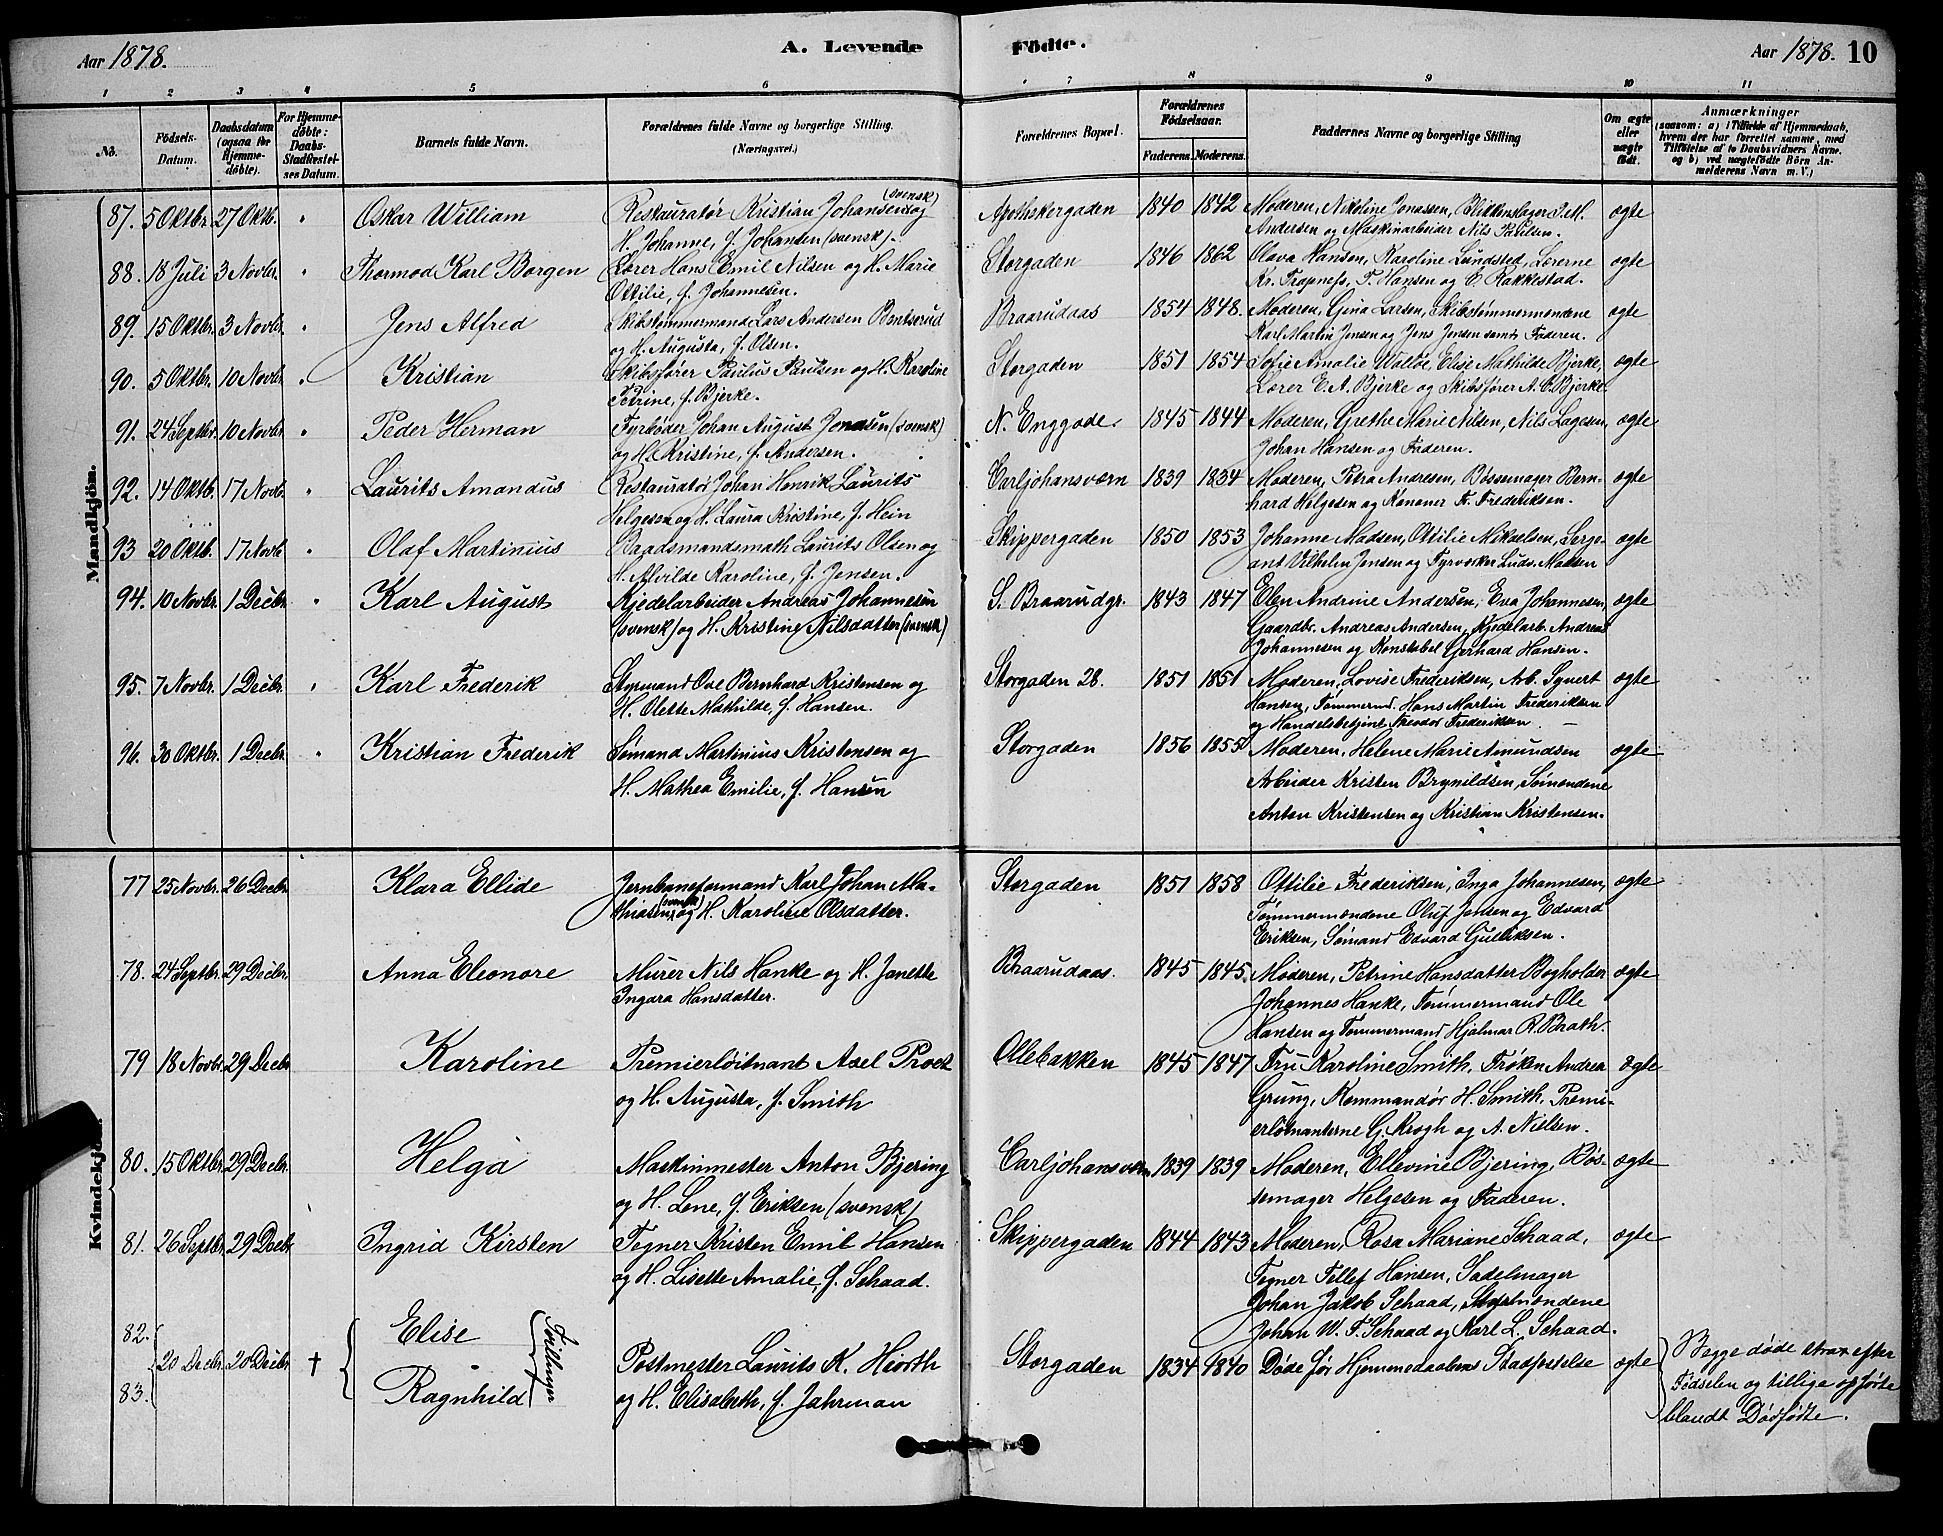 Aar 1878. A. Levende Fødte. Aar 1878. 10
1 2 3 4 5 6 7 8 9 10 11
No. Fødsels-Datum. Daabsdatum (ogsaa for Hjemmedøbte). For Hjemmedøbte: Daabs-Stadfæstelses Datum. Barnets fulde Navn. Forældrenes fulde Navne og borgerlige Stilling. (Næringsvei.) Forældrenes Bopæl. Forældrenes Fødselsaar. Faderens. Moderens. Faddernes Navne og borgerlige Stilling Om ægte eller uægte født. Anmærkninger (saasom: a) i Tilfælde af Hjemmedaab, hvem der har forrettet samme, med Tilføielse af to Daabsvidners Navne. og b) ved uægtefødte Børn Anmelderens Navn m. V.)
Mandkjøn.
87. 5 Oktbr. 27 Oktb. " Oskar William Restauratør Kristian Johansen (svensk) og Apothekergaden 1840 1842 Moderen, Nikoline Jonassen, Blikkenslager J. M. ægte
H. Johanne, f. Johansen (svensk). Andersen og Maskinarbeider Nils Paulsen.
88. 18 Juli 3 Novbr. " Thormod Karl Borgen Lærer Hans Emil Nilsen og H. Marie Storgaden 1846 1862 Olava Hansen, Karoline Lundsted, Lærerne ægte
Ottilie, f. Johannesen. Kr. Trapness, T. Hansen og C. Rakkestad.
89. 15 Oktbr. 3 Novbr. " Jens Alfred Skibstømmermand Lars Andersen Berntserud Braarudaas 1854 1848. Moderen, Gina Larsen, Skibstømmermændene ægte
og H. Augusta, f. Olsen. Karl Martin Jensen og Jens Jensen samt Faderen.
90. 5 Oktbr. 10 Novbr. " Kristian Skibsfører Paulus Paulsen og H. Karoline Storgaden 1851 1854 Sofie Amalie Walløe, Elise Mathilde Bjerke, ægte
Petrine, f. Bjerke. Lærer E. A. Bjerke og Skibsfører A. C. Bjerke
91. 24 Septbr. 10 Novbr. " Peder Herman Fyrbøder Johan August Jonasen (svensk) N. Enggade. 1845 1844 Moderen, Grethe Marie Nilsen, Nils Lagesen, ægte
og H. Kristine, f. Andersen. Johan Hansen og Faderen.
92. 14 Oktb. 17 Novb. " Laurits Amandus Restauratør Johan Henrik Laurits Carljohansværn 1839 1834 Moderen, Petra Andresen, Bøssemager Bern- ægte
Helgesen og H. Laura Kristine, f. Hein hard Helgesen og Kanoner K. Frederiksen.
93 20 Oktb. 17 Novb " Olaf Martinius Baadsmandsmath Laurits Olsen og Skippergaden 1850 1853 Johanne Madsen, Ottilie Mikaelsen, Serge- ægte
H. Alvilde Karoline, f. Jensen. ant Vilhelm Jensen og Fyrværker Ludv. Madsen
94. 10 Novbr. 1 Decbr. " Karl August Kjedelarbeider Andreas Johannesen S. Braarudgr. 1843 1847 Elen Andrine Andersen, Eva Johannesen, ægte
(svensk) og H. Kristine Nilsdatter (svensk) Gaardbr. Andreas Andersen, Kjedelarb. Andreas
Johannesen og Konstabel Gerhard Hansen.
95. 7 Novbr. 1 Decbr. " Karl Frederik Styrmand Ove Bernhard Kristensen og Storgaden 28. 1851 1851 Moderen, Lovise Frederiksen, Arb. Syvert ægte
H. Olette Mathilde, f. Hansen. Hansen, Tømmermd. Hans Martin Frederiksen
og Handelsbetjent Theodor Frederiksen. —
96. 30 Oktbr. 1 Decbr. " Kristian Frederik Sømand Martinius Kristensen og Storgaden 1856 1855 Moderen, Helene Marie Amundsen ægte
H. Mathea Emilie, f. Hansen Arbeider Kristen Brynildsen, Sømændene
Anton Kristensen og Kristian Kristensen.
Kvindekjøn.
77 25 Novbr. 26 Decbr. Klara Ellide Jernbaneformand Karl Johan Ma- Storgaden 1851 1858 Ottilie Frederiksen, Inga Johannesen, ægte
thiasen (svensk) og H. Karoline Olsdatter. Tømmermændene Oluf Jensen og Edvard
Eriksen, Sømand Edvard Gulliksen.
78. 24 Septbr. 29 Decbr. Anna Eleonore Murer Nils Hanke og H. Janette Braarudaas. 1845 1845. Moderen, Petrine Hansdatter Bogholder ægte
Ingara Hansdatter. Johannes Hanke, Tømmermand Ole
Hansen og Tømmermand Hjalmar R. Brath.
79 18 Novbr. 29 Decbr Karoline Premierløitnant Axel Proet Ollebakken 1845 1847 Fru Karoline Smith, Frøken Andrea ægte
og H. Augusta, f. Smith Grung, Kommandør H. Smith, Premi-
erløtnanterne G. Krogh og A. Nielsen.
80. 15 Oktbr. 29 Decbr. Helga Maskinmester Anton Bjering Carljohansværn 1839 1839 Moderen, Ellevine Bjering, Bøs- ægte
og H. Lene, f. Eriksen (svensk) semager Helgesen og Faderen.
81. 26 Septbr. 29 Decbr Ingrid Kirsten Tegner Kristen Emil Hansen Skippergaden 1844 1843 Moderen, Rosa Mariane Schaad, ægte
og H. Lisette Amalie, f. Schaad. Tegner Tellef Hansen, Sadelmager
Johan Jakob Schaad, Styrmændene
82. Elise Johan W. F. Schaad og Karl L. Schaad.
20 Decbr. 20 Decbr † Tvillinger Postmester Laurits K. Hiorth Storgaden 1834 1840 Døde før Hjemmedaabens Stadfæstelse ægte Begge døde strax efter
83. Ragnhild og H. Elisabeth, f. Jahrman Fødselen og tillige opførte
blandt Dødfødte.